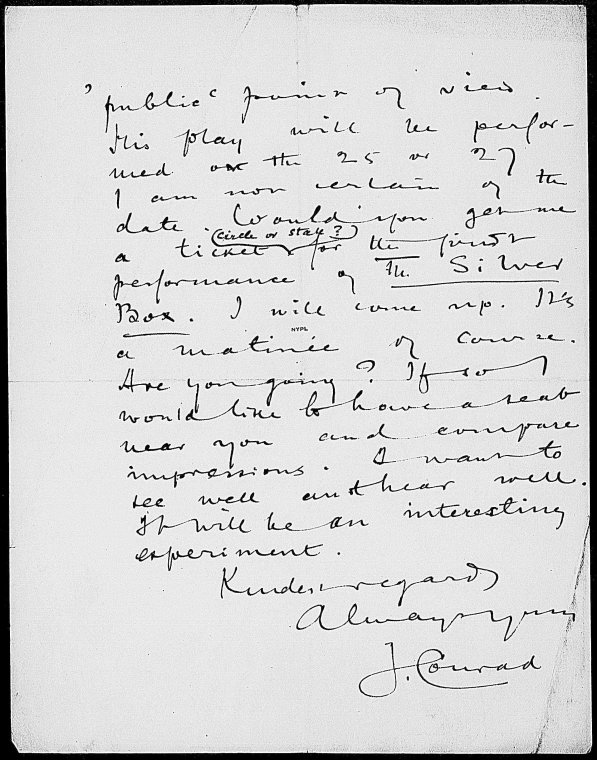 "public" point of view.
His play will be perfor-
med on the 25 or 27
I am not certain of the
date. Would you get me
(circle or stall?)
a ticket for the first
performance of The Silver
Box. I will come up. It's
NYPL
a matinée of course.
Are you going? If so I
would like to have a seat
near you and compare
impressions. I want to
see well and hear well.
It will be an interesting
experiment.
Kindest regards
Always yours
J. Conrad